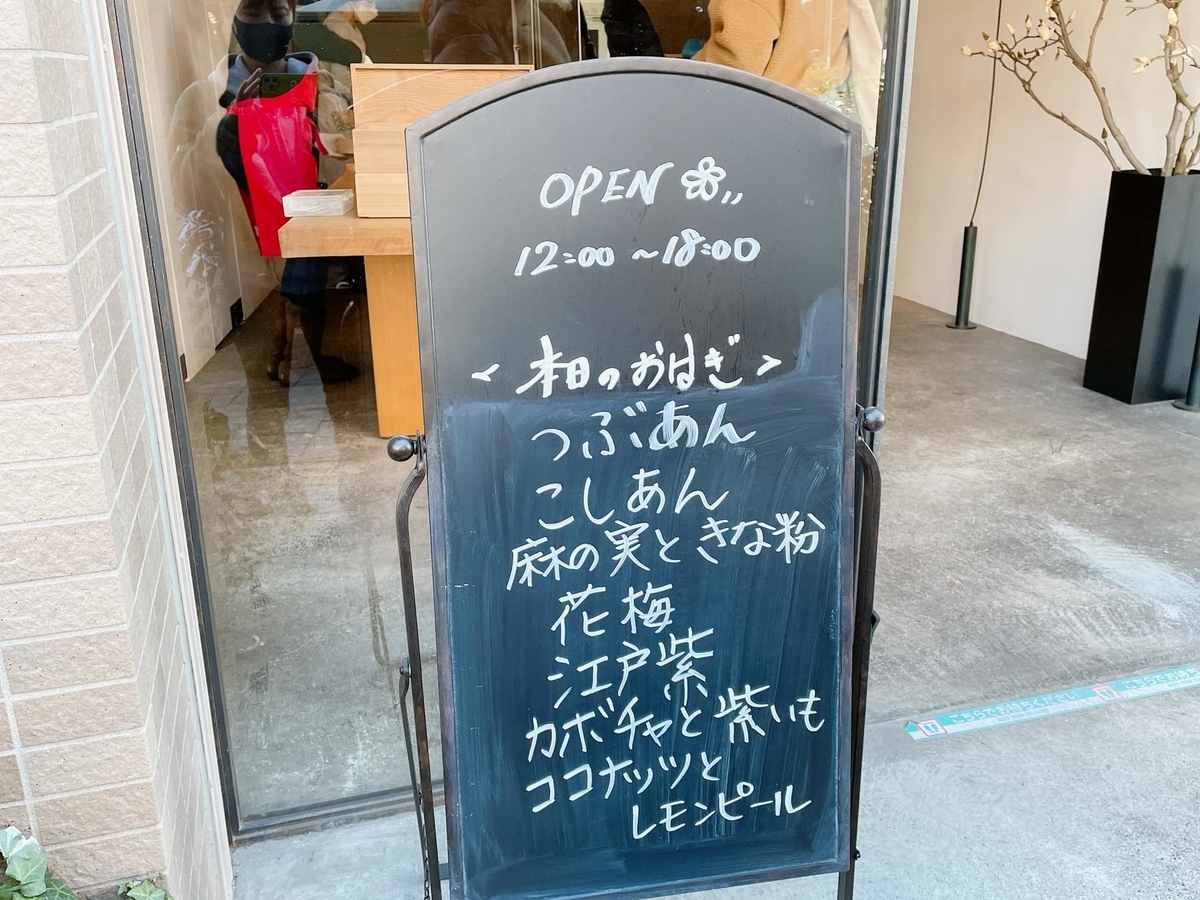 OPEN
12:00 ~18:00
<本日のおはぎ>
つぶあん
こしあん
麻の実ときな粉
花梅
江戸紫
カボチャと紫いも
ココナッツと
レモンピール